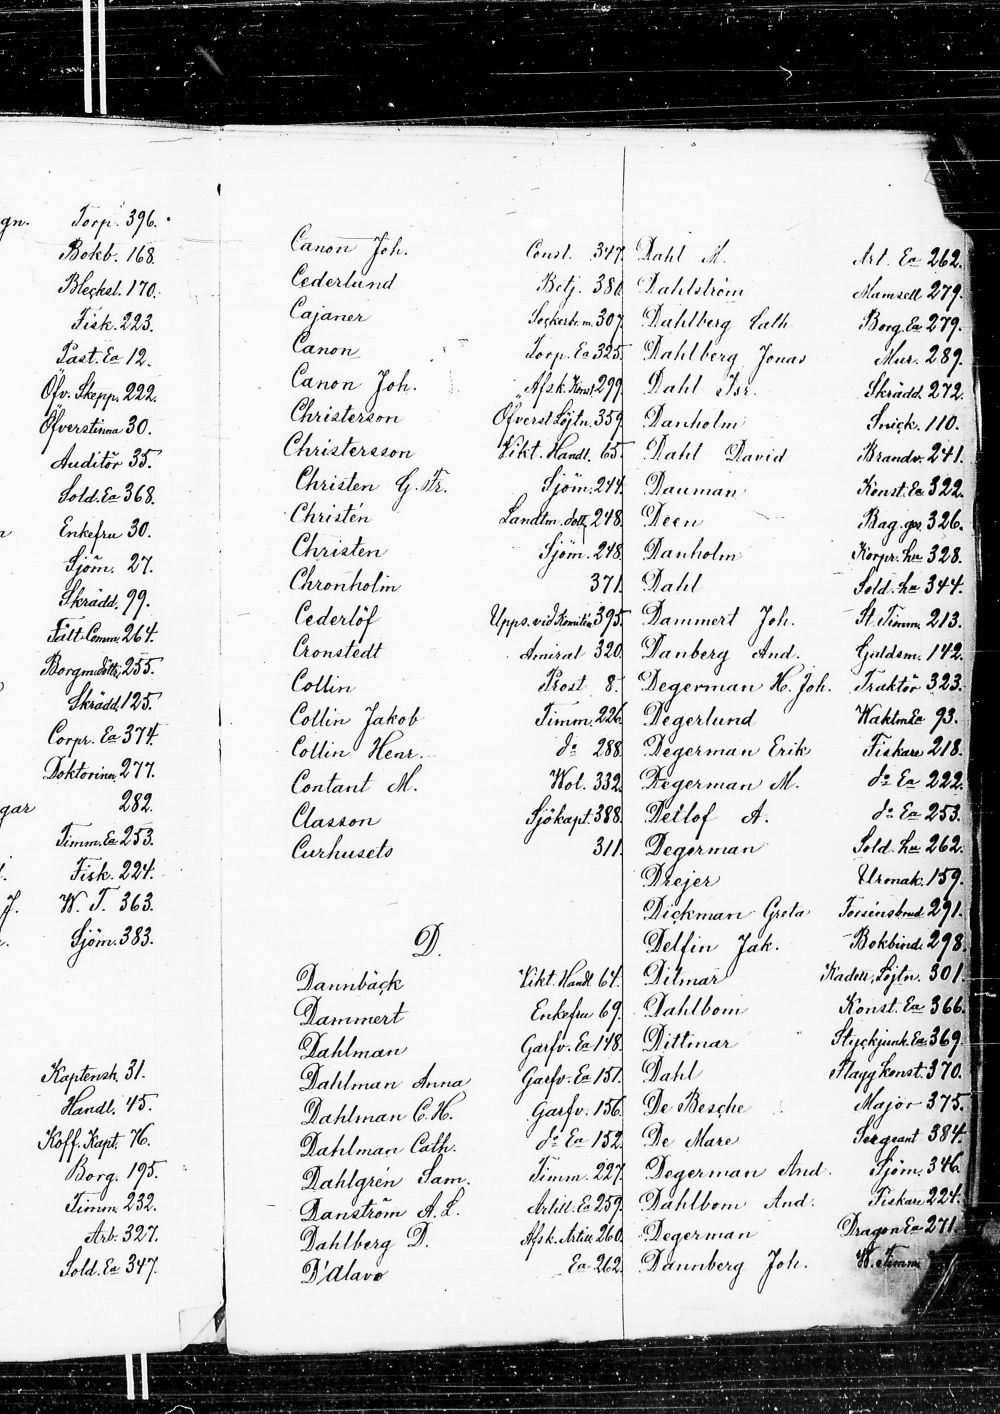 gn. Torp. 396.
Bokb. 168.
Bleckst. 170.
Fisk. 223.
Past. Ea 12.
Öfv. Skepp. 222.
Öfverstinna 30.
Auditör 35.
Sold. Ea 368.
Enkefru 30.
Sjöm. 27.
Skrädd. 99.
Fält Comm. 264.
Borgm.döttr. 255.
Skrädd. 125.
Corpr. Ea 374.
Doktorinn. 277.
gar 282.
Timm. Ea 253.
Fisk. 224.
J. W. T. 363.
Sjöm. 383.
Kaptensk. 31.
Handl. 45.
Koff. Kapt. 76.
Borg. 195.
Timm. 232.
Arb. 327.
Sold. Ea 347.
Canon Joh. Const. 347.
Cederlund Betj. 386
Cajaner Sockerb. m. 307.
Canon Torp. Ea 325.
Canon Joh. Afsk. Konst 299.
Christerson Öfverst Löjtn. 359.
Christersson Vikt. Handl. 65.
Christen G. Fr. Sjöm. 244.
Christén Landtm. dott. 248.
Christen Sjöm. 248.
Chronholm 371.
Cederlöf Upps. vid 395.
Cronstedt Amiral 320.
Collin Prost 8.
Collin Jakob Timm. 226.
Collin Henr. do 288.
Contant M. Vol. 332.
Classon Sjökapt. 388.
Curhusets 311.
D.
Dannbäck Vikt. Handl. 64.
Dammert Enkefru 69.
Dahlman Garfv. Ea 148.
Dahlman Anna Garfv. Ea 151.
Dahlman C. H. Garfv. 156.
Dahlman Cath. do Ea 152.
Dahlgrén Sam. Timm. 227.
Danström A. L. Artill. Ea 259.
Dahlberg D. Afsk. 260.
D'Alavo Ea 262.
Dahl M. Art. Ea 262.
Dahlström Mamsell 279.
Dahlberg Cath. Borg. Ea 279.
Dahlberg Jonas Mur. 289.
Dahl Isr. Skrädd. 272.
Danholm Snick. 110.
Dahl David Brandv. 241.
Dauman Konst. Ea 322.
Deen Bag. ges. 326.
Danholm Korpr. hu 328.
Dahl Sold. hu 344.
Dammert Joh. St. Timm. 213.
Danberg And. Guldsm. 142.
Degerman H. Joh. Traktör 323.
Degerlund Waktm Ea 93.
Degerman Erik Fiskare 218.
Degerman M. do Ea 222.
Detlof A. do Ea 253.
Degerman Sold. hu 262.
Drejer Urmak. 159.
Dickman Greta 291.
Delfin Jak. Bokbind. 298.
Ditmar Kadett, Löjtn. 301.
Dahlbom Konst. Ea 366.
Dittmar Styckjunk. Ea 369.
Dahl Flagg Konst. 370.
De Besche Major 375.
De Mare Sergeant 384.
Degerman And. Sjöm. 346.
Dahlbom And. Fiskare 224.
Degerman Dragon Ea 271.
Dannberg Joh. W. Timm.